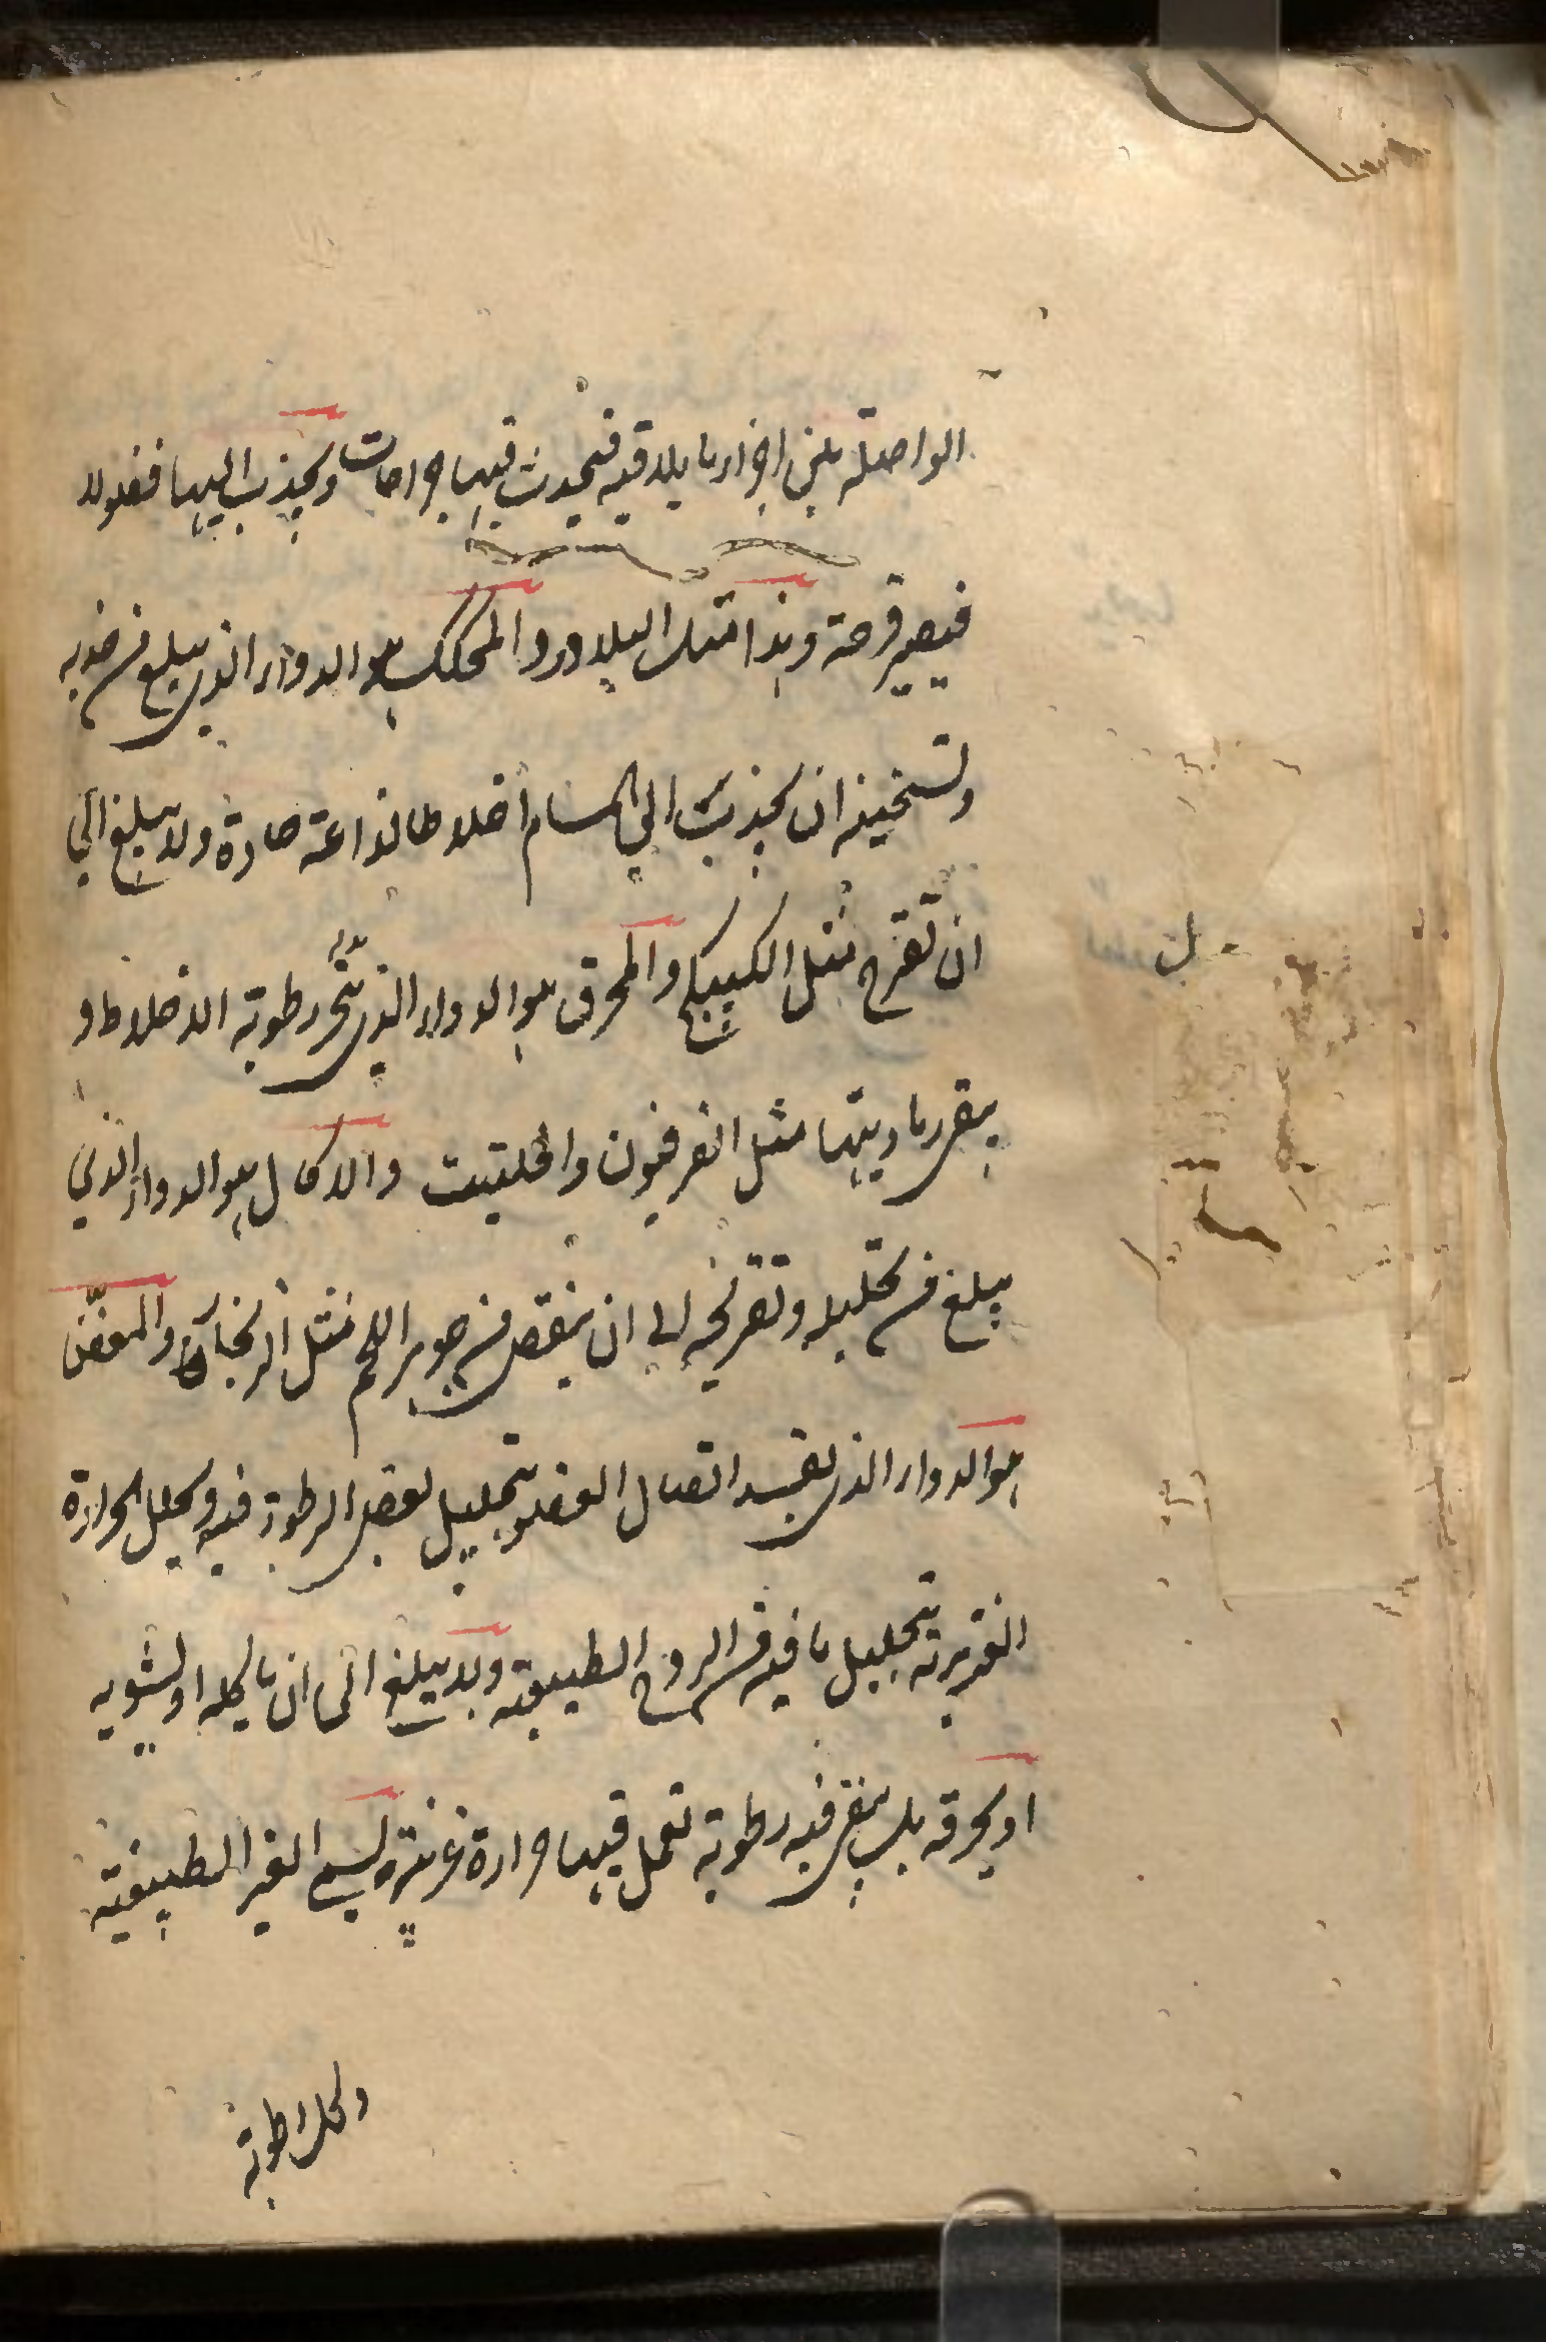 الواصلة بين اجزاء ما يلاقيه فيحدث فيها جراحات ويجذب اليها فضولا
فيصير قرحة وهذا مثل البلادر والمحكك هو الدواء الذي يبلغ من جذبه
وتسخينه ان يجذب الى المسام اخلاطا لذاعة حادة ولا يبلغ الى
ان تقرح مثل الكبيكج والمحرق هو الدواء الذي يبخر رطوبة الاخلاط و
يبقى رماديتها مثل الفرفيون والحلتيت والاكال هو الدواء الذي
يبلغ من تحليله وتقريحه الى ان ينقص من جوهر اللحم مثل الزنجار والمعفن
هو الدواء الذي يفسد اتصال العضو بتحليل بعض الرطوبة فيه ويحلل الحرارة
الغريزية بتحليل ما فيه من الروح الطبيعية ولا يبلغ الى ان ياكله او يشويه
او يحرقه بل يبقى فيه رطوبة تعمل فيها حرارة غريبة ليس الغير الطبيعية
وكل رطوبة